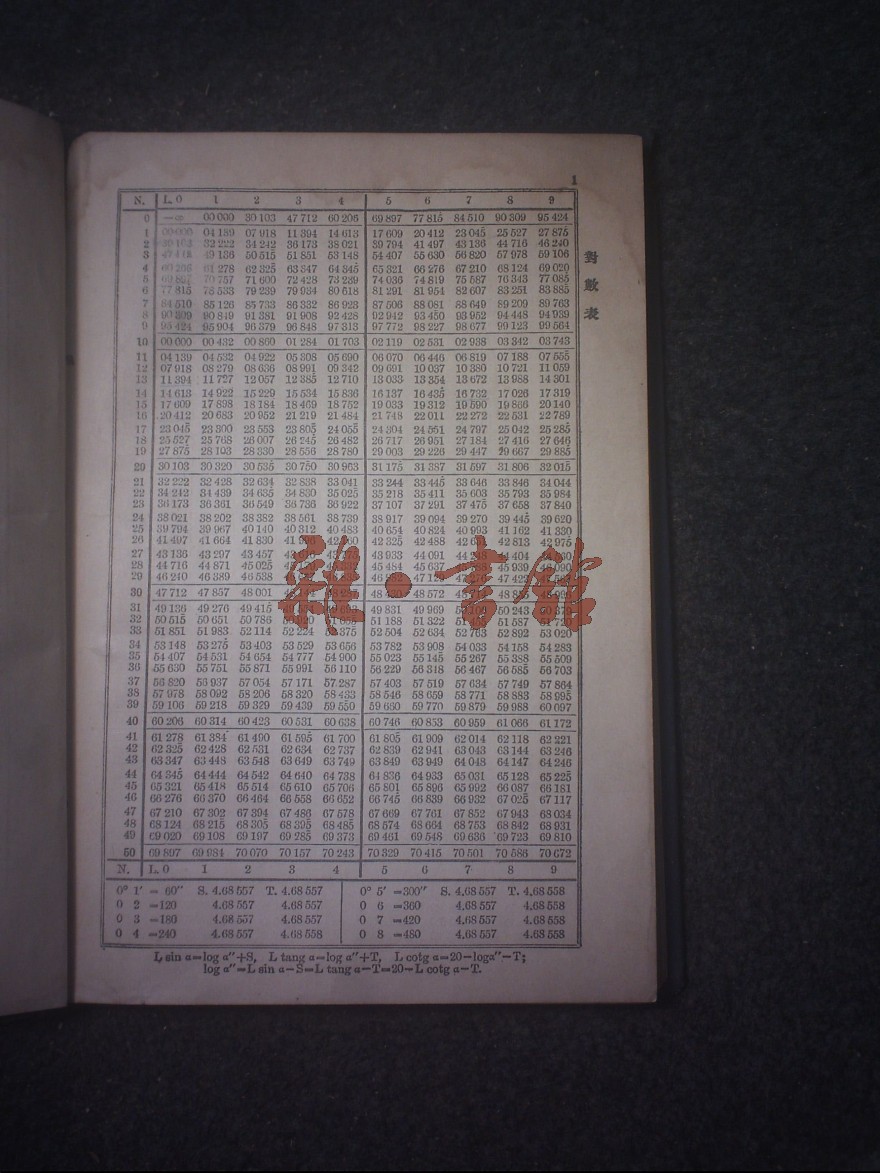 1
對數表
N. L. 0 1 2 3 4 5 6 7 8 9
0 —∞ 00 000 30 103 47 712 60 206 69 897 77 815 84 510 90 309 95 424
1 00 000 04 139 07 918 11 394 14 613 17 609 20 412 23 045 25 527 27 875
2 30 103 32 222 34 242 36 173 38 021 39 794 41 497 43 136 44 716 46 240
3 47 712 49 136 50 515 51 851 53 148 54 407 55 630 56 820 57 978 59 106
4 60 206 61 278 62 325 63 347 64 345 65 321 66 276 67 210 68 124 69 020
5 69 897 70 757 71 600 72 428 73 239 74 036 74 819 75 587 76 343 77 085
6 77 815 78 533 79 239 79 934 80 618 81 291 81 954 82 607 83 251 83 885
7 84 510 85 126 85 733 86 332 86 923 87 506 88 081 88 649 89 209 89 763
8 90 309 90 849 91 381 91 908 92 428 92 942 93 450 93 952 94 448 94 939
9 95 424 95 904 96 379 96 848 97 313 97 772 98 227 98 677 99 123 99 564
10 00 000 00 432 00 860 01 284 01 703 02 119 02 531 02 938 03 342 03 743
11 04 139 04 532 04 922 05 308 05 690 06 070 06 446 06 819 07 188 07 555
12 07 918 08 279 08 636 08 991 09 342 09 691 10 037 10 380 10 721 11 059
13 11 394 11 727 12 057 12 385 12 710 13 033 13 354 13 672 13 988 14 301
14 14 613 14 922 15 229 15 534 15 836 16 137 16 435 16 732 17 026 17 319
15 17 609 17 898 18 184 18 469 18 752 19 033 19 312 19 590 19 866 20 140
16 20 412 20 683 20 952 21 219 21 484 21 748 22 011 22 272 22 531 22 789
17 23 045 23 300 23 553 23 805 24 055 24 304 24 551 24 797 25 042 25 285
18 25 527 25 768 26 007 26 245 26 482 26 717 26 951 27 184 27 416 27 646
19 27 875 28 103 28 330 28 556 28 780 29 003 29 226 29 447 29 667 29 885
20 30 103 30 320 30 535 30 750 30 963 31 175 31 387 31 597 31 806 32 015
21 32 222 32 428 32 634 32 838 33 041 33 244 33 445 33 646 33 846 34 044
22 34 242 34 439 34 635 34 830 35 025 35 218 35 411 35 603 35 793 35 984
23 36 173 36 361 36 549 36 736 36 922 37 107 37 291 37 475 37 658 37 840
24 38 021 38 202 38 382 38 561 38 739 38 917 39 094 39 270 39 445 39 620
25 39 794 39 967 40 140 40 312 40 483 40 654 40 824 40 993 41 162 41 330
26 41 497 41 664 41 830 42 325 42 488 42 813 42 975
27 43 136 43 297 43 457 43 933 44 091 44 404
28 44 716 44 871 45 025 45 484 45 637 45 939
29 46 240 46 389 46 538
30 47 712 47 857 48 001 48 572
31 49 136 49 276 49 415 49 831 49 969 50 243
32 50 515 50 651 50 786 51 188 51 322 51 587
33 51 851 51 983 52 114 52 224 52 375 52 504 52 634 52 763 52 892 53 020
34 53 148 53 275 53 403 53 529 53 656 53 782 53 908 54 033 54 158 54 283
35 54 407 54 531 54 654 54 777 54 900 55 023 55 145 55 267 55 388 55 509
36 55 630 55 751 55 871 55 991 56 110 56 229 56 318 56 467 56 585 56 703
37 56 820 56 937 57 054 57 171 57 287 57 403 57 519 57 634 57 749 57 864
38 57 978 58 092 58 206 58 320 58 433 58 546 58 659 58 771 58 883 58 995
39 59 106 59 218 59 329 59 439 59 550 59 660 59 770 59 879 59 988 60 097
40 60 206 60 314 60 423 60 531 60 638 60 746 60 853 60 959 61 066 61 172
41 61 278 61 384 61 490 61 595 61 700 61 805 61 909 62 014 62 118 62 221
42 62 325 62 428 62 531 62 634 62 737 62 839 62 941 63 043 63 144 63 246
43 63 347 63 448 63 548 63 649 63 749 63 849 63 949 64 048 64 147 64 246
44 64 345 64 444 64 542 64 640 64 738 64 836 64 933 65 031 65 128 65 225
45 65 321 65 418 65 514 65 610 65 706 65 801 65 896 65 992 66 087 66 181
46 66 276 66 370 66 464 66 558 66 652 66 745 66 839 66 932 67 025 67 117
47 67 210 67 302 67 394 67 486 67 578 67 669 67 761 67 852 67 943 68 034
48 68 124 68 215 68 305 68 395 68 485 68 574 68 664 68 753 68 842 68 931
49 69 020 69 108 69 197 69 285 69 373 69 461 69 548 69 636 69 723 69 810
50 69 897 69 984 70 070 70 157 70 243 70 329 70 415 70 501 70 586 70 672
N. L. 0 1 2 3 4 5 6 7 8 9
0° 1′ = 60″ S. 4.68 557 T. 4.68 557 0° 5′ =300″ S. 4.68 557 T. 4.68 558
0 2 =120 4.68 557 4.68 557 0 6 =360 4.68 557 4.68 558
0 3 =180 4.68 557 4.68 557 0 7 =420 4.68 557 4.68 558
0 4 =240 4.68 557 4.68 558 0 8 =480 4.68 557 4.68 558
L sin α=log α″+S, L tang α=log α″+T, L cotg α=20−logα″−T;
log α″=L sin α−S=L tang α−T=20−L cotg α−T.
雜·書館